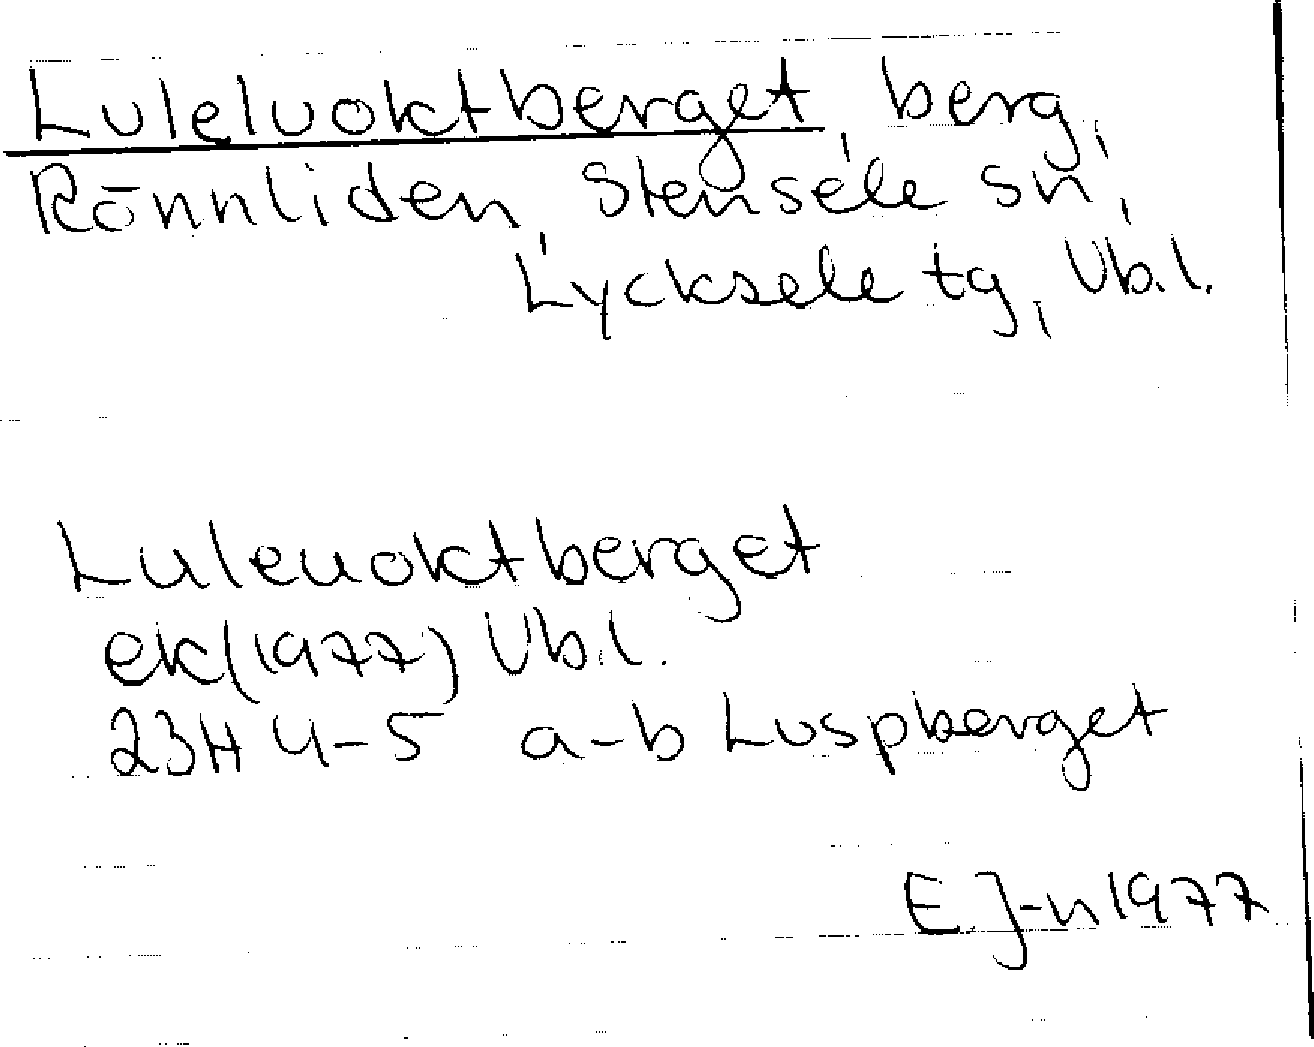 Luleluoktberget, berg,
Rönnliden, Stensele sn,
Lycksele tg, Vb.l.
Luleuoktberget
ek(1977) Vb.l.
23H 4-5 a-b Luspberget
E.J-n 1977